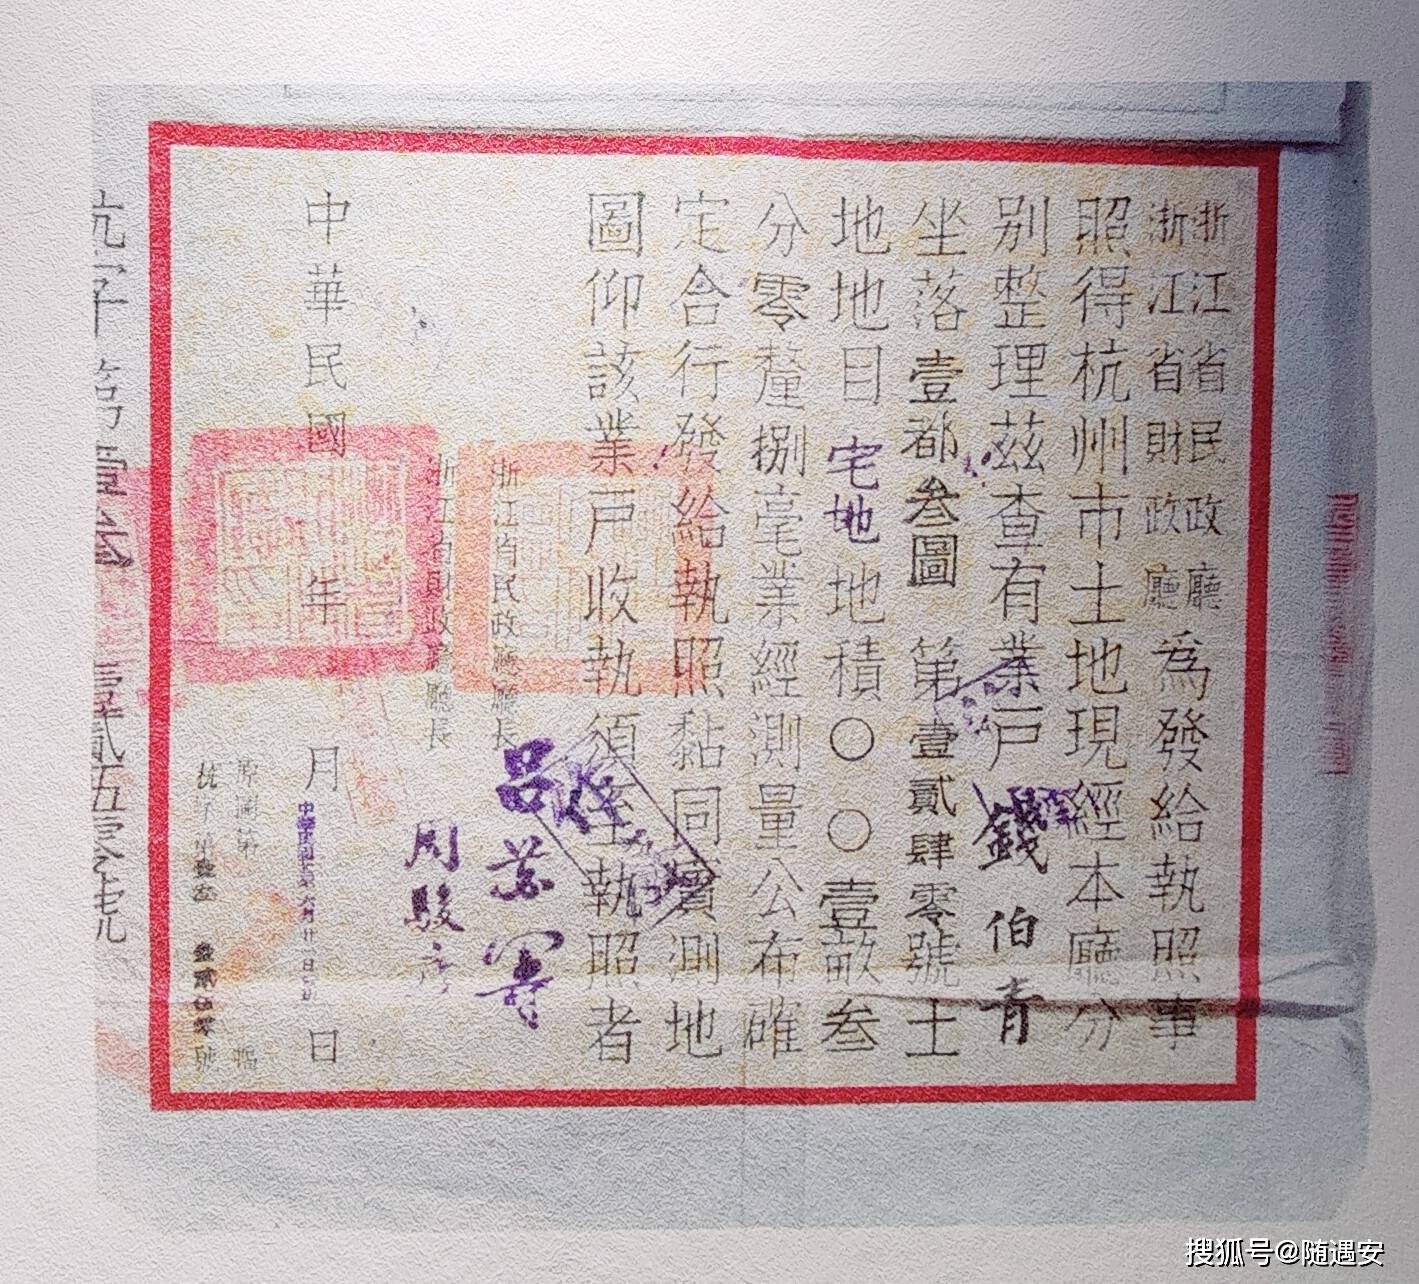 浙江省民政廳
浙江省財政廳
為發給執照事
照得杭州市土地現經本廳分
別整理茲查有業戶錢伯青
坐落壹都叁圖 第壹貳肆零號土
地地目宅地地積〇〇壹畝叁
分零釐捌毫業經測量公布確
定合行發給執照黏同實測地
圖仰該業戶收執須至執照者
浙江省民政廳廳長 呂苾籌
浙江省財政廳廳長 周駿彥
中華民國 年 月 日
原圖第 幅
杭字第 號
杭字第壹 壹貳五零號
搜狐号@随遇安